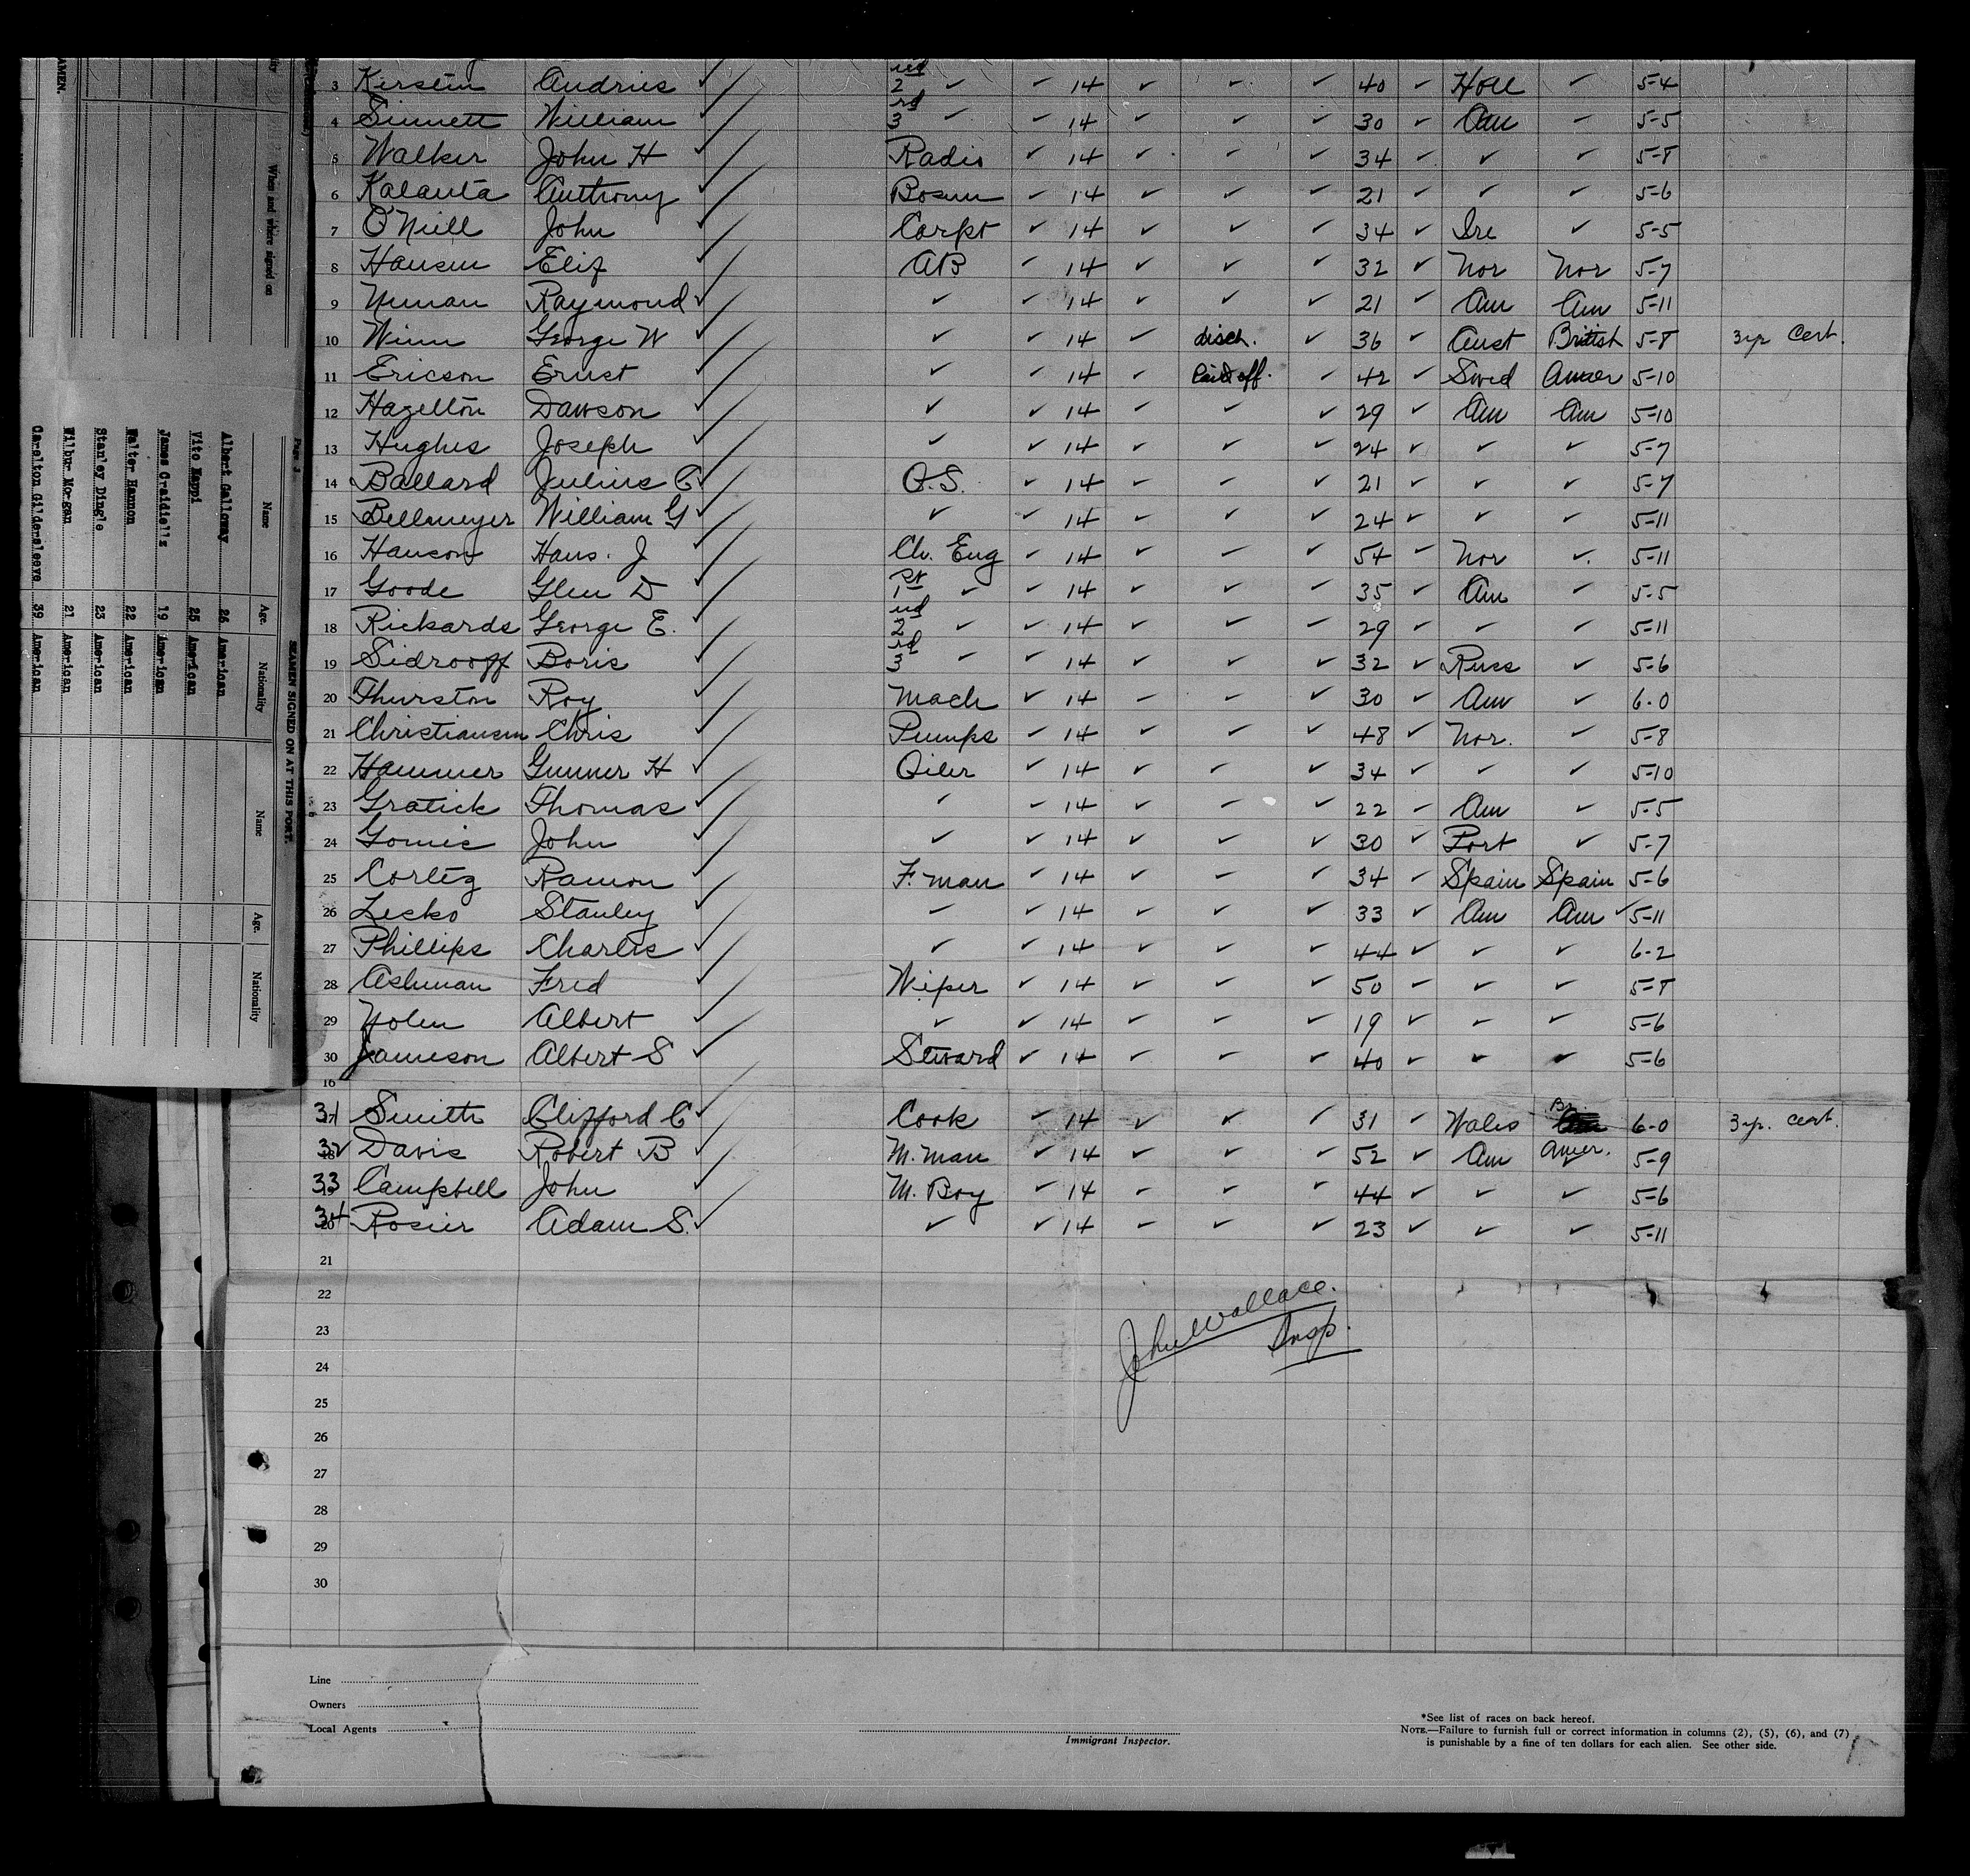 3 Kirstein Andries ✓ 2nd ✓ ✓ 14 ✓ ✓ ✓ 40 ✓ Holl ✓ 5-4
4 Sinnett William ✓ 3rd ✓ ✓ 14 ✓ ✓ ✓ 30 ✓ Am ✓ 5-5
5 Walker John H ✓ Radio ✓ 14 ✓ ✓ ✓ 34 ✓ ✓ ✓ 5-8
6 Kalanta Anthony ✓ Bosun ✓ 14 ✓ ✓ ✓ 21 ✓ ✓ ✓ 5-6
7 O'Neill John ✓ Carpt ✓ 14 ✓ ✓ ✓ 34 ✓ Ire ✓ 5-5
8 Hansen Elif ✓ AB ✓ 14 ✓ ✓ ✓ 32 ✓ Nor Nor 5-7
9 Nunan Raymond ✓ ✓ ✓ 14 ✓ ✓ ✓ 21 ✓ Am Am 5-11
10 Winn George W ✓ ✓ ✓ 14 ✓ disch. ✓ 36 ✓ Aust British 5-8 3yr Cert.
11 Ericson Ernst ✓ ✓ 14 ✓ Paid off. ✓ 42 ✓ Swed Amer 5-10
12 Hazelton Dawson ✓ ✓ ✓ 14 ✓ ✓ ✓ 29 ✓ Am Am 5-10
13 Hughes Joseph ✓ ✓ ✓ 14 ✓ ✓ ✓ 24 ✓ ✓ ✓ 5-7
14 Ballard Julius C ✓ O.S. ✓ 14 ✓ ✓ ✓ 21 ✓ ✓ ✓ 5-7
15 Bellmeyer William G ✓ ✓ ✓ 14 ✓ ✓ ✓ 24 ✓ ✓ ✓ 5-11
16 Hanson Hans. J ✓ Ch. Eng ✓ 14 ✓ ✓ ✓ 54 ✓ Nor ✓ 5-11
17 Goode Glen D ✓ 1st ✓ ✓ 14 ✓ ✓ ✓ 35 ✓ Am ✓ 5-5
18 Rickards George E. ✓ 2nd ✓ ✓ 14 ✓ ✓ ✓ 29 ✓ ✓ ✓ 5-11
19 Sidrooff Boris ✓ 3rd ✓ ✓ 14 ✓ ✓ ✓ 32 ✓ Russ ✓ 5-6
20 Thurston Roy ✓ Mach ✓ 14 ✓ ✓ ✓ 30 ✓ Am ✓ 6-0
21 Christiansen Chris ✓ Pumps ✓ 14 ✓ ✓ ✓ 48 ✓ Nor. ✓ 5-8
22 Hammer Gunner H ✓ Oiler ✓ 14 ✓ ✓ ✓ 34 ✓ ✓ ✓ 5-10
23 Gratick Thomas ✓ ✓ ✓ 14 ✓ ✓ ✓ 22 ✓ Am ✓ 5-5
24 Gomis John ✓ ✓ ✓ 14 ✓ ✓ ✓ 30 ✓ Port ✓ 5-7
25 Cortez Ramon ✓ F. man ✓ 14 ✓ ✓ ✓ 34 ✓ Spain Spain 5-6
26 Lesko Stanley ✓ ✓ ✓ 14 ✓ ✓ ✓ 33 ✓ Am Am ✓ 5-11
27 Phillips Charles ✓ ✓ ✓ 14 ✓ ✓ ✓ 44 ✓ ✓ ✓ 6-2
28 Ashman Fred ✓ Wiper ✓ 14 ✓ ✓ ✓ 50 ✓ ✓ ✓ 5-8
29 Nolen Albert ✓ ✓ ✓ 14 ✓ ✓ ✓ 19 ✓ ✓ ✓ 5-6
30 Jameson Albert S ✓ Steward ✓ 14 ✓ ✓ ✓ 40 ✓ ✓ ✓ 5-6
16
31 Smith Clifford C ✓ Cook ✓ 14 ✓ ✓ ✓ 31 ✓ Wales Br. 6-0 3yr. cert.
32 Davis Robert B ✓ M. man ✓ 14 ✓ ✓ ✓ 52 ✓ Am Amer. 5-9
33 Campbell John ✓ M. Boy ✓ 14 ✓ ✓ ✓ 44 ✓ ✓ ✓ 5-6
34 Rosier Adam S. ✓ ✓ ✓ 14 ✓ ✓ ✓ 23 ✓ ✓ ✓ 5-11
21
22
23
24
25
26
27
28
29
30
John Wallace.
Insp.
Line
Owners
Local Agents
Immigrant Inspector.
*See list of races on back hereof.
NOTE.—Failure to furnish full or correct information in columns (2), (5), (6), and (7)
is punishable by a fine of ten dollars for each alien. See other side.
When and where signed on
Page 3
SEAMEN SIGNED ON AT THIS PORT.
Name Age. Nationality Name Age. Nationality
Albert Galloway 26 American
Vito Kappi 25 American
James Craidiells 19 American
Walter Hannon 22 American
Stanley Dingle 23 American
Wilbur Morgan 21 American
Carelton Gildersleeve 39 American